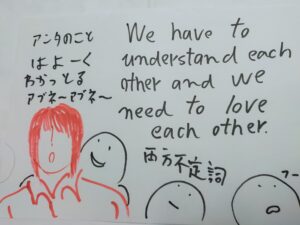 アンタのこと
はよーく
わかっとる
アブネ〜アブネ〜
We have to
understand each
other and we
need to love
each other.
両方不定詞
フー